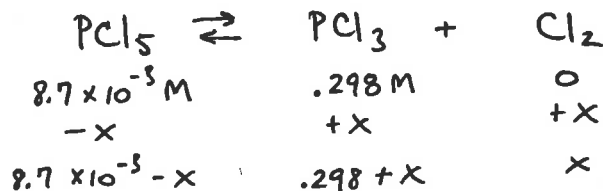 PCl₅ ⇌ PCl₃ + Cl₂
8.7 × 10⁻³ M .298 M 0
- x + x + x
8.7 × 10⁻³ - x .298 + x x